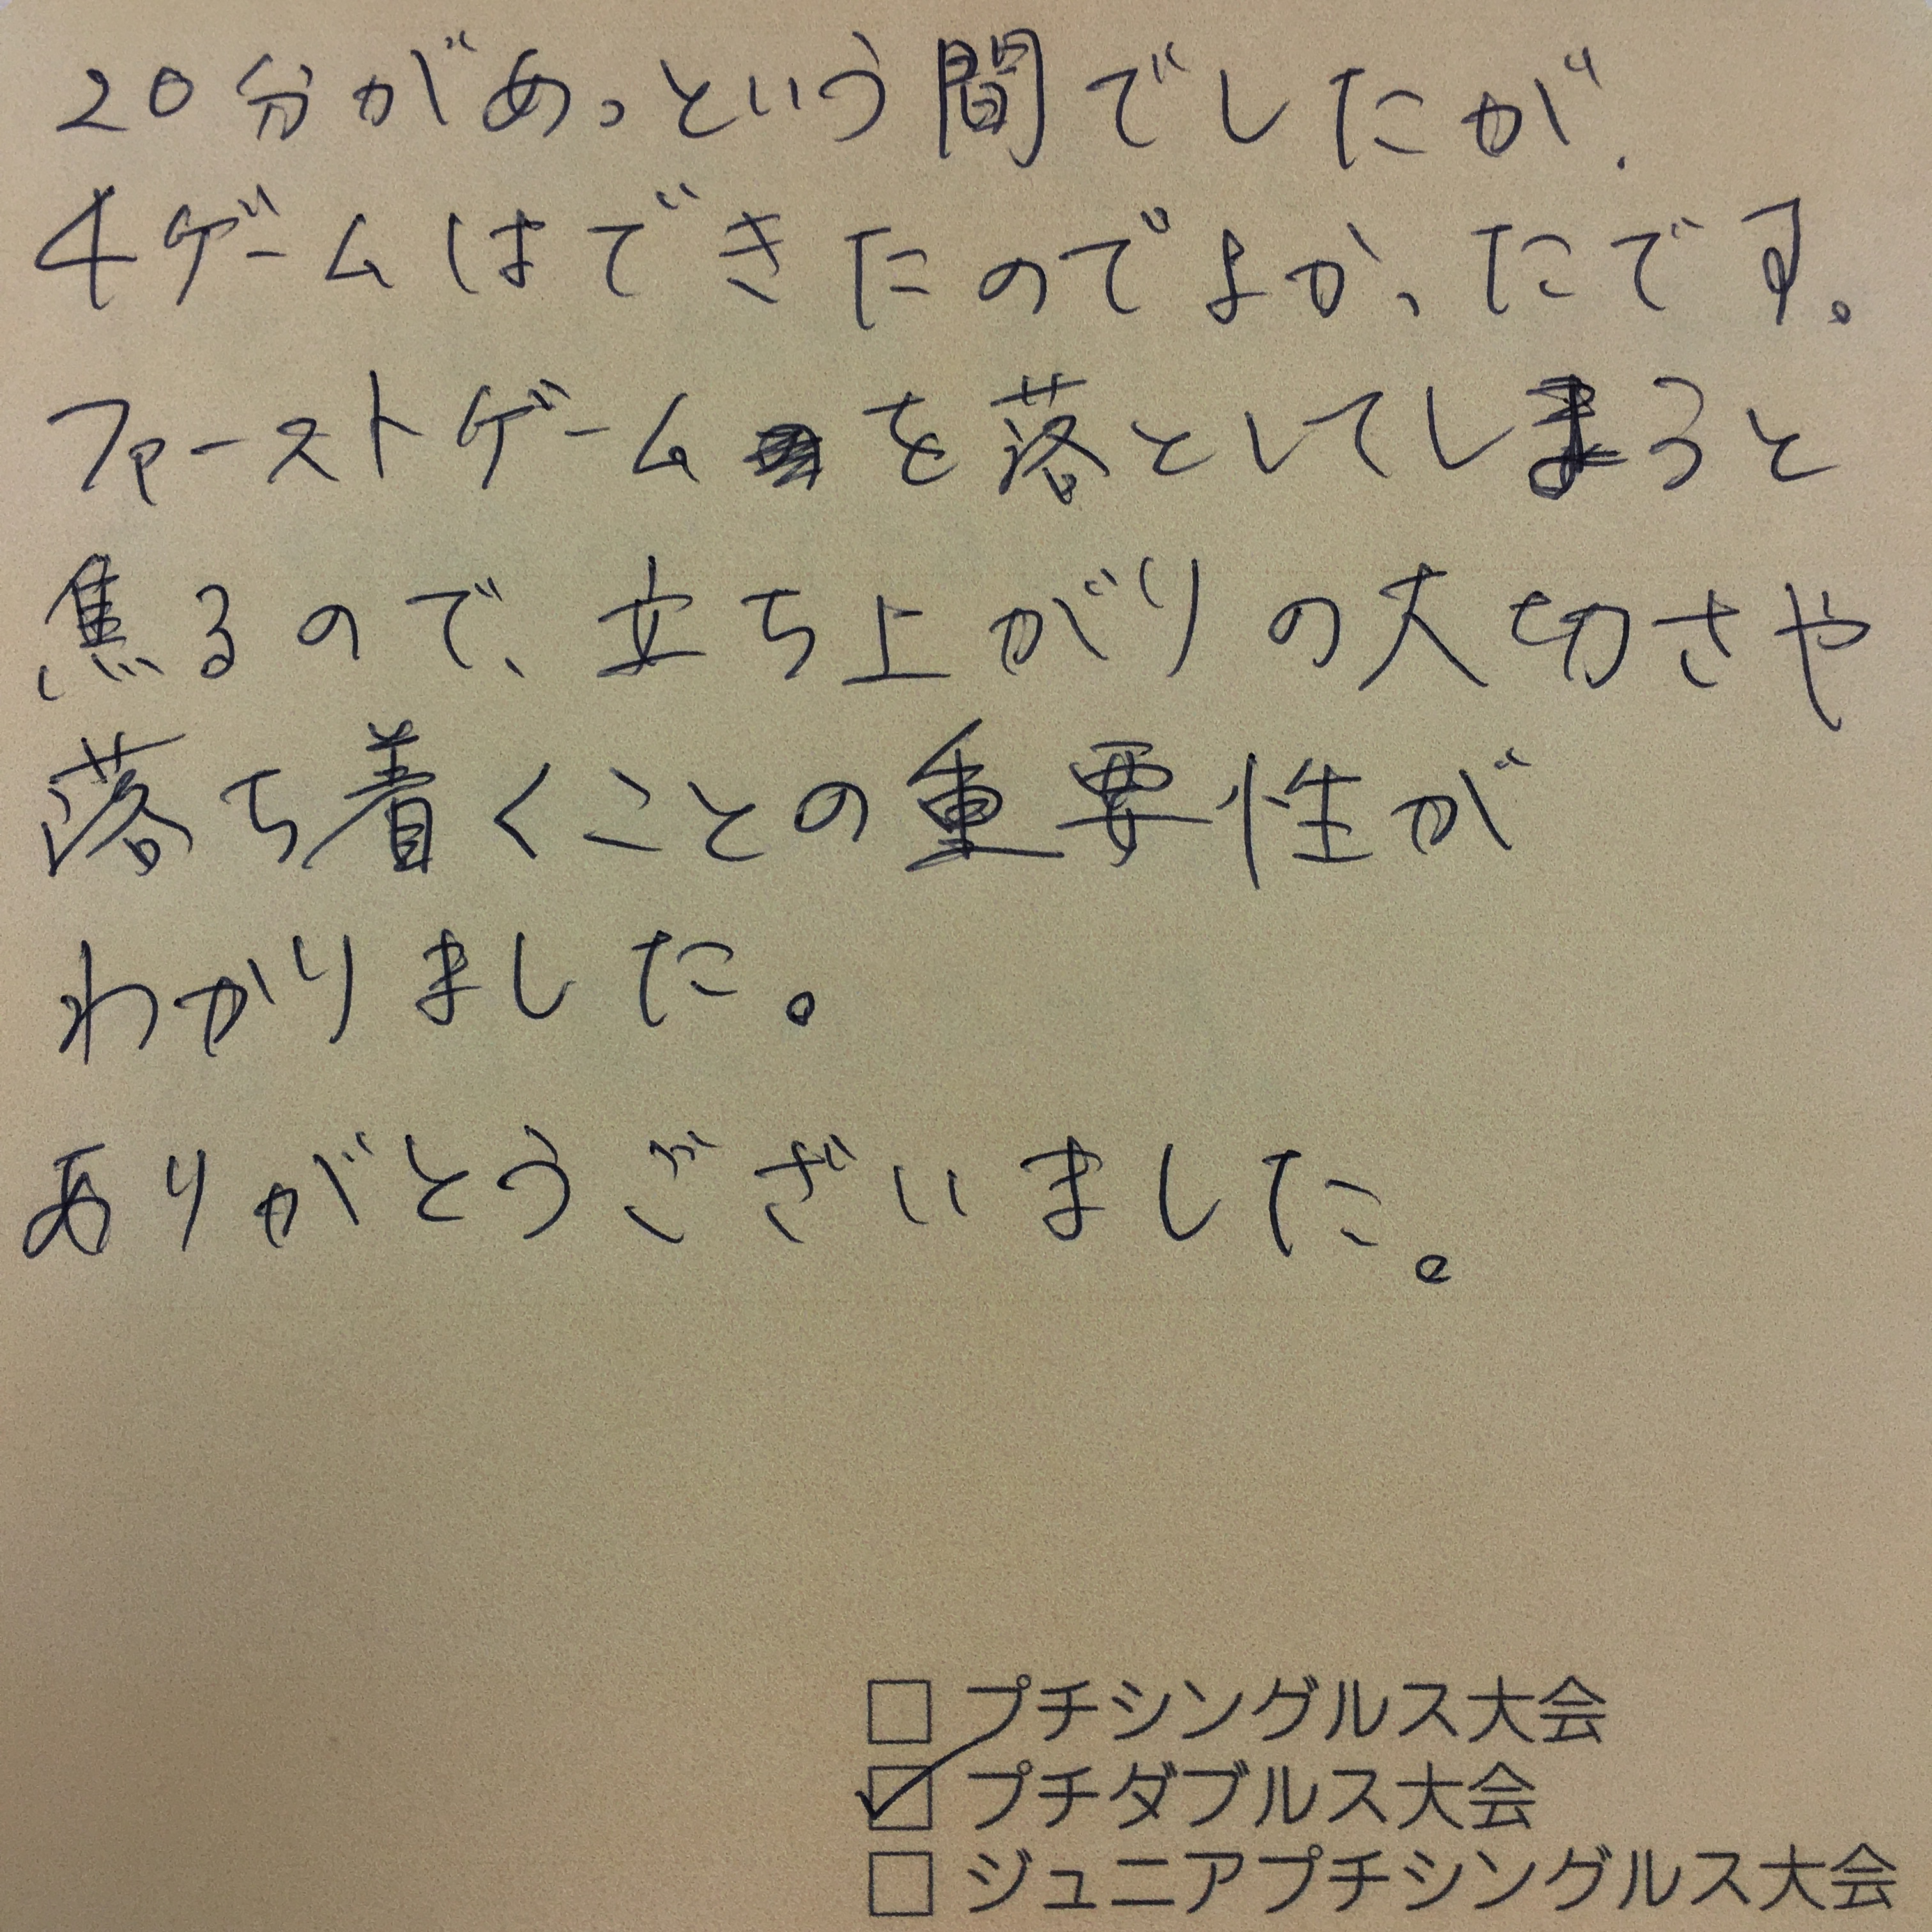 20分があっという間でしたが、
4ゲームはできたのでよかったです。
ファーストゲームを落としてしまうと
焦るので、立ち上がりの大切さや
落ち着くことの重要性が
わかりました。
ありがとうございました。
□ プチシングルス大会
☑ プチダブルス大会
□ ジュニアプチシングルス大会